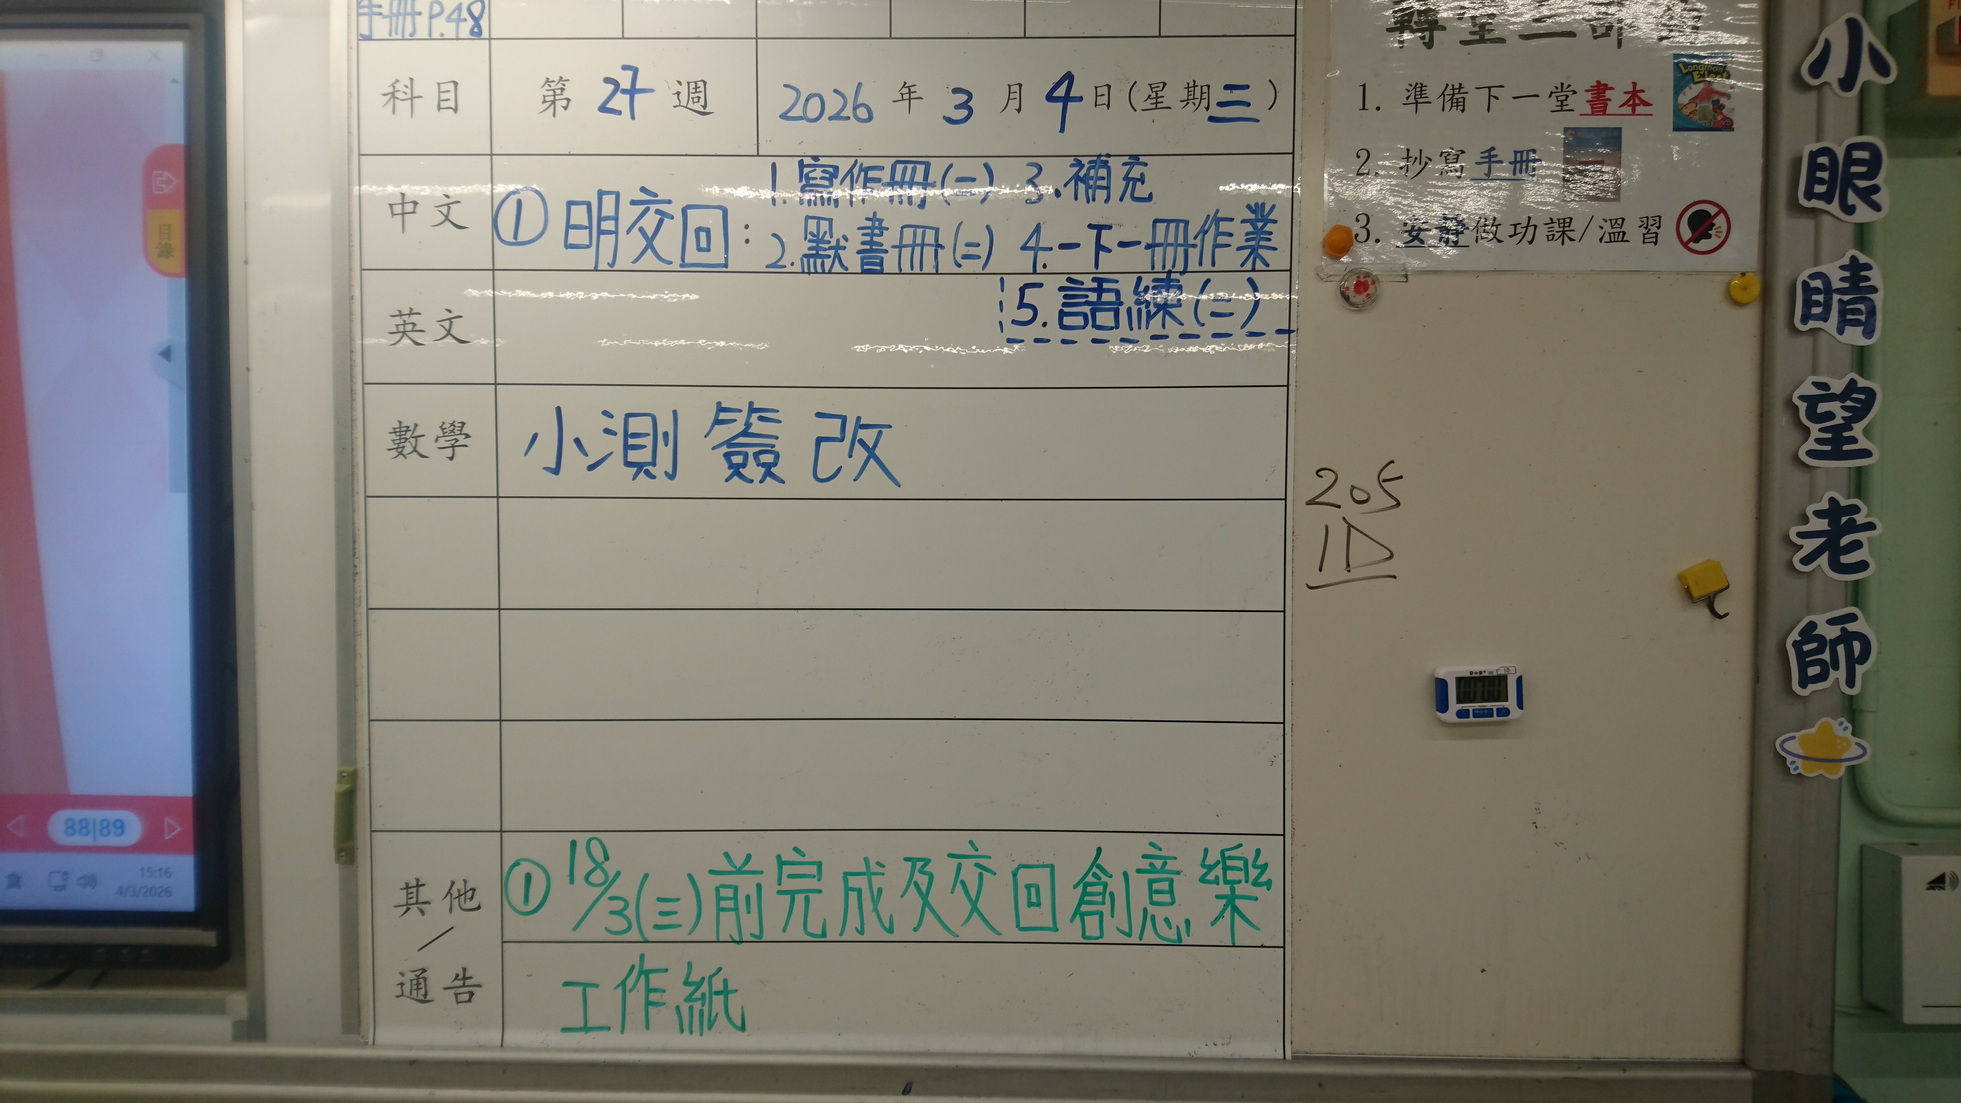 手冊 P.48
科目 第 27 週 2026 年 3 月 4 日(星期三)
中文 ① 明交回: 1. 寫作冊(二) 3. 補充
2. 默書冊(二) 4. 一下一冊作業
5. 語練(二)
英文
數學 小測 簽改
其他/通告 ① 18/3(三)前完成及交回創意樂
工作紙
1. 準備下一堂書本
2. 抄寫手冊
3. 安靜做功課/溫習
205
1D
小眼睛望老師
目錄
88|89
15:16
4/3/2026